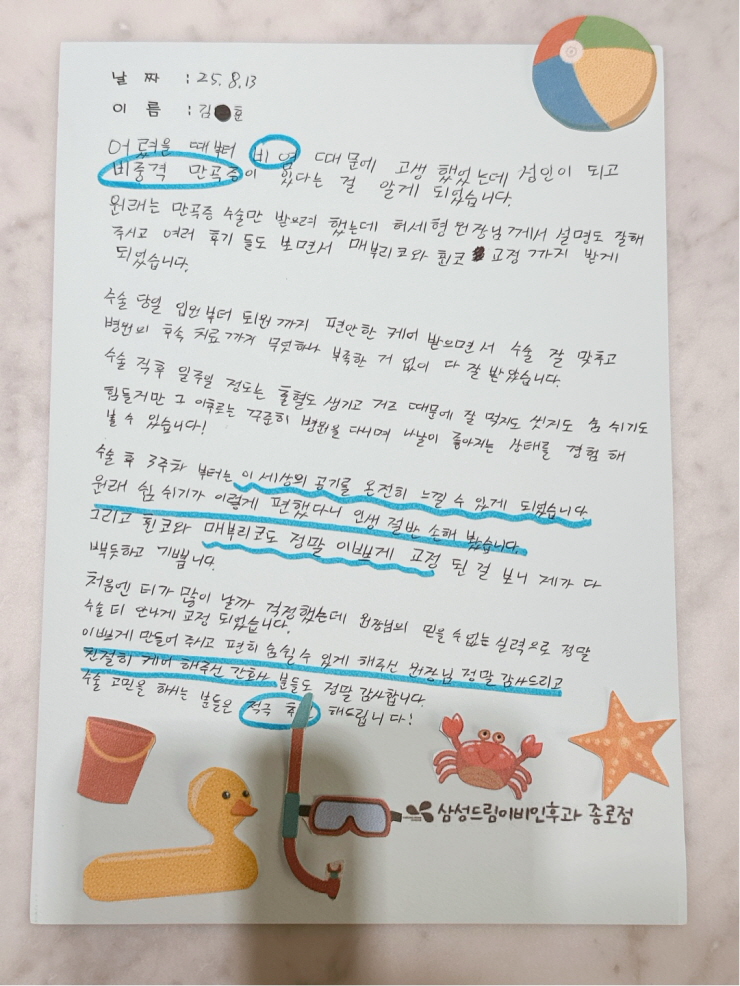 날 짜 : 25. 8. 13
이 름 : 김 훈
어렸을 때부터 비염 때문에 고생 했었는데 성인이 되고
비중격 만곡증이 있다는 걸 알게 되었습니다.
원래는 만곡증 수술만 받으려 했는데 허세형 원장님께서 설명도 잘해
주시고 여러 후기 들도 보면서 매부리코와 휜코 교정 까지 받게
되었습니다.
수술 당일 입원부터 퇴원까지 편안한 케어 받으면서 수술 잘 맞추고
병원의 후속 치료까지 무엇하나 부족한 거 없이 다 잘 받았습니다.
수술 직후 일주일 정도는 출혈도 생기고 거즈 때문에 잘 먹지도 씻지도 숨 쉬기도
힘들지만 그 이후로는 꾸준히 병원을 다니며 나날이 좋아지는 상태를 경험 해
볼 수 있습니다!
수술 후 3주차 부터는 이 세상의 공기를 온전히 느낄 수 있게 되었습니다.
원래 숨 쉬기가 이렇게 편했다니 인생 절반 손해 봤습니다.
그리고 휜코와 매부리코도 정말 이쁘게 교정 된 걸 보니 제가 다
뿌듯하고 기쁩니다.
처음엔 티가 많이 날까 걱정했는데 원장님의 믿을 수 없는 실력으로 정말
수술 티 안나게 교정 되었습니다.
이쁘게 만들어 주시고 편히 숨쉴 수 있게 해주신 원장님 정말 감사드리고
친절히 케어 해주신 간호사 분들도 정말 감사합니다.
수술 고민을 하시는 분들은 적극 추 해드립니다!
삼성드림이비인후과 종로점